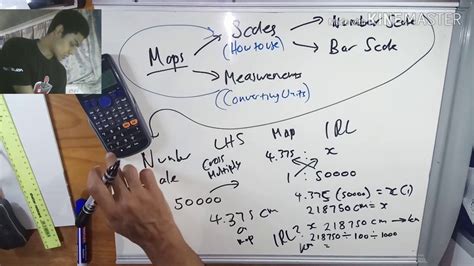 KINEMASTER
Scales
(How to use)
Number Scale
Bar Scale
Maps
Measurements
(Converting Units)
Number
LHS
Map
IRL
Cross
Multiply
4.375 : x
1 : 50000
50000
4.375 (50000) = x (1)
218750 cm = x
4.375 cm
map
IRL ? x 218750 cm → km
km = 218750 ÷ 100 ÷ 1000